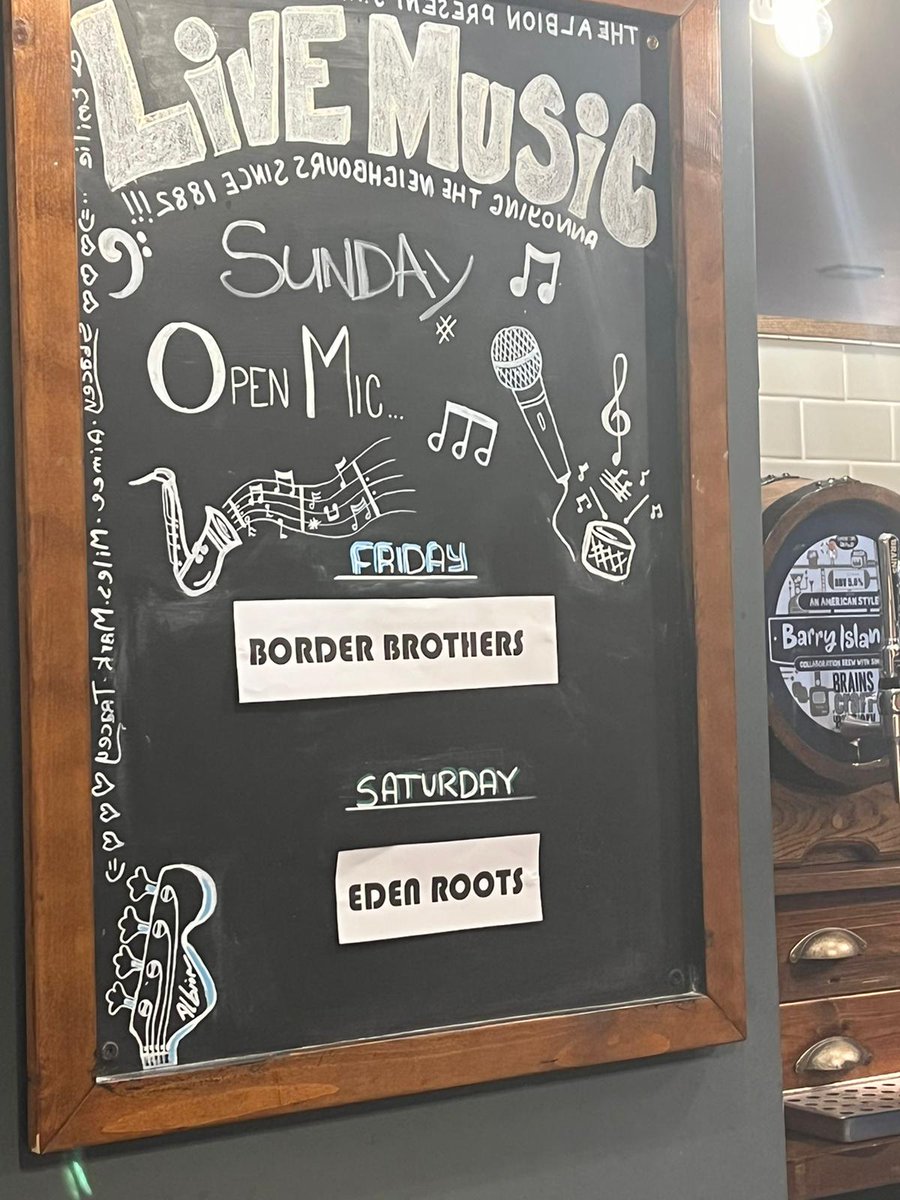 THE ALBION PRESENT
LIVE MUSIC
ANNOYING THE NEIGHBOURS SINCE 1882!!!
SUNDAY
OPEN MIC...
FRIDAY
BORDER BROTHERS
SATURDAY
EDEN ROOTS
Stacey. Aimee. Miles. Mark. Tracey
& Emilia...
Albion
AN AMERICAN STYLE
Barry Islan
COLLABORATION BREW WITH
BRAINS
craft
BRAIN